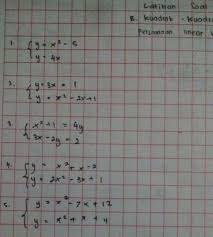 Latihan Soal
B. Kuadrat - Kuadrat
Persamaan linear
1. { y = x² - 5
y = 4x
2. { y = 3x = 1
y = x² - 2x + 1
3. { x² + 1 = 4y
3x - 2y = 2
4. { y = x² + x - 2
y = 2x² - 3x + 1
5. { y = x² - 7x + 12
y = x² + x + 4